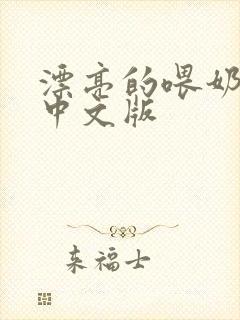 漂亮的喂奶
中文版
来福士